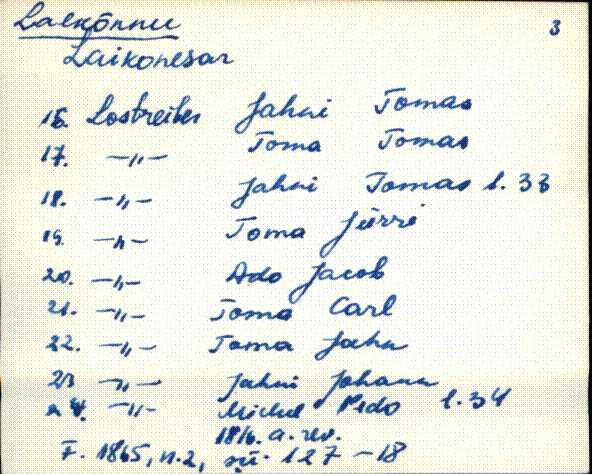 Lalkõnnu 3
Laikonesar
16. Lostreiber Jahni Tomas
17. —„— Toma Tomas
18. —„— Jahni Tomas l. 33
19. —„— Toma Jürri
20. —„— Ado Jacob
21. —„— Toma Carl
22. —„— Toma Jahn
23 —„— Jahni Johann
24. —„— Michel Pedo l. 34
1816. a. rev.
F. 1865, n. 2, sü. 127 - 18